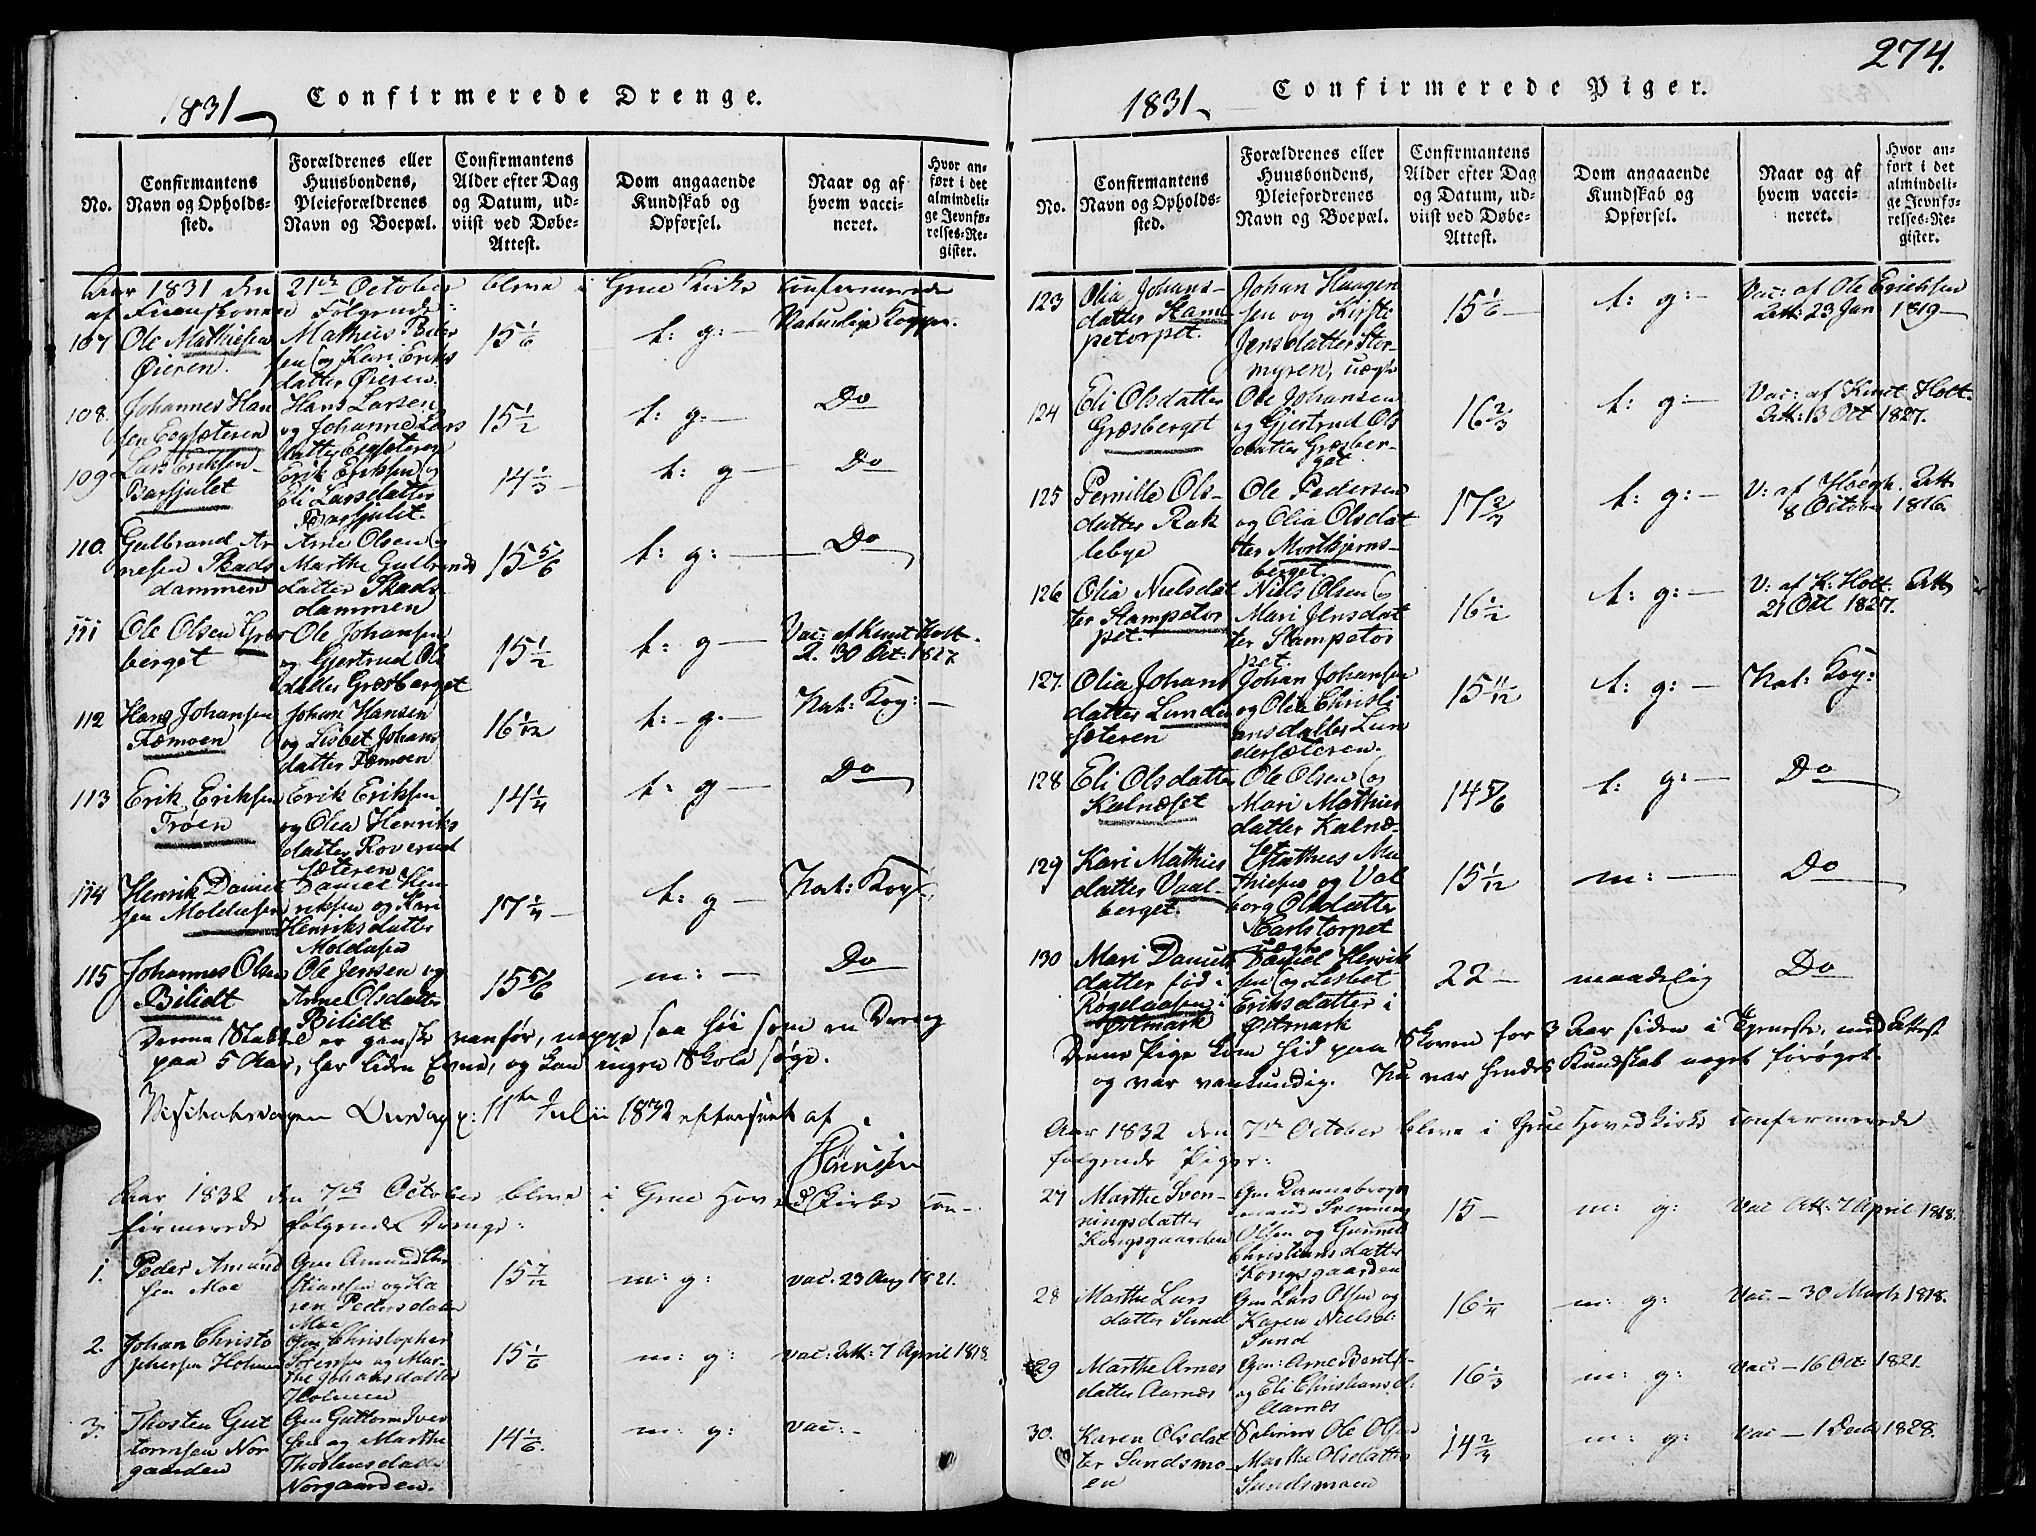 274.
1831
Confirmerede Drenge.
No.
Confirmantens
Navn og Opholds-
sted.
Forældrenes eller
Huusbondens,
Pleieforældrenes
Navn og Boepæl.
Confirmantens
Alder efter Dag
og Datum, ud-
viist ved Døbe-
Attest.
Dom angaaende
Kundskab og
Opførsel.
Naar og af
hvem vacci-
neret.
Hvor an-
ført i det
almindeli-
ge Jevnfø-
relses-Re-
gister.
Aar 1831 den 21de October bleve i Grue Kirke confirmerede
af Finnskoven Følgende:
107
Ole Mathiesen
Øieren.
Mathies Peder
sen og Kari Eriks
datter Øieren.
15 1/6
t: g:
Naturlige Kopper.
108.
Johannes Han
sen Eegsæteren
Hans Larsen
og Johanne Lars
datter Eegsæteren
15 1/2
t: g:
Do
109
Lars Eriksen
Barsjulet
Erik Eriksen og
Eli Larsdatter
Barsjulet.
14 1/3
t: g
Do
110.
Gulbrand Ar
nesen Skads
dammen
Arne Olsen og
Marthe Gulbrands
datter Skads
dammen
15 5/6
t: g:
Do
111
Ole Olsen Græs
berget
Ole Johansen
og Gjertrud Ols
datter Græsberget
15 1/2
t: g
Vac: af Knut Holt.
A. 30 Oct: 1827.
112
Hans Johansen
Fæmoen
Johan Hansen
og Lisbet Johans
datter Fæmoen
16 1/12
t: g.
Nat: Kop:
113
Erik Eriksen
Trøen
Erik Eriksen
og Olea Henriks
datter Roverud
sæteren
14 1/4
t: g
Do
114
Henrik Daniel
sen Moldusen
Daniel Hen
riksen og Kari
Henriksdatter
Moldusen
17 1/4
t: g
Nat: Kop:
115
Johannes Olsen
Bilidt
Ole Jensen og
Anne Olsdatter
Bilidt
15 5/6
m:
Do
Denne Stakkel er ganske vanfør, neppe saa høi som en Dreng
paa 5 Aar, har liden Evne, og kan ingen Skole søge.
11te Julii 1832 efterseet af
Sørensen
Aar 1832 den 7de October bleve i Grue Hoved Kirke con-
firmerede følgende Drenge:
1.
Peder Amund
sen Moe
Gm Amund Chri
stiansen og Ka
ren Pedersdatter
Moe
15 7/12
m: g:
vac. 23 Aug 1821.
2.
Johan Christo
phersen Holmen
Gm Christopher
Sørensen og Mar-
the Johansdatter
Holmen
15 1/6
m: g:
vac: Att: 7 April 1818.
3.
Thosten Gut
tormsen Nor
gaarden
Gm Guttorm Iver
sen og Marthe
Thostensdatter
Norgaarden.
14 1/6.
m: g:
vac:
1831
Confirmerede Piger.
No.
Confirmantens
Navn og Opholds-
sted.
Forældrenes eller
Huusbondens,
Pleiefordrenes
Navn og Boepæl.
Confirmantens
Alder efter Dag
og Datum, ud-
viist ved Døbe-
Attest.
Dom angaaende
Kundskab og
Opførsel.
Naar og af
hvem vacci-
neret.
Hvor an-
ført i det
almindeli-
ge Jevnfø-
relses-Re-
gister.
123
Olia Johans-
datter Stam
petorpet.
Johan Haagen
sen og Kirsti
Jensdatter Stor-
myren, uægte
15 1/6
t: g:
Vac: af Ole Erichsen
Att: 23 Jan 1819
124
Eli Olsdatter
Græsberget
Ole Johansen
og Gjertrud Ols
datter Græsber-
get
16 2/3
t: g:
Vac: af Knut Holt.
Att: 13 Oct 1827.
125
Pernille Ols-
datter Rak
lebye
Ole Pedersen
og Olia Olsdat
ter Mortkjerns-
berget.
17 2/3
t: g:
V: af Høegh. Att
8 October 1816.
126
Olia Nielsdat
ter Stampetor
pet.
Niels Olsen og
Mari Jensdat
ter Stampetor
pet.
16 1/2
t: g:
V: af K: Holt: Att
21 Oct 1827.
127.
Olia Johans
datter Lunder
sæteren
Johan Johansen
og Olia Christi
ansdatter Lun
dersæteren.
15 11/12
t: g:
Nat: Kop:
128
Eli Olsdatter
Kalnæset
Ole Olsen og
Mari Mathies
datter Kalnæ-
set
14 5/6
t: g:
Do
129
Kari Mathies
datter Vaal-
berget.
Mathies Ma
thiesen og Val
borg Olsdatter
Karlstorpet
uægte
15 1/12
m:
Do
130
Mari Daniels
datter fød i
Røgelaasen i
Østmark
Daniel Henrik
sen og Lisbet
Eriksdatter i
Østmark
22
maadelig
Do
Denne Pige kom hid paa Skoven for 3 Aar siden i Tjeneste, med Attest
og var vankundig. Nu var hendes Kundskab noget forøget.
Aar 1832 den 7de October bleve i Grue Hoved Kirke confirmerede
følgende Piger:
27
Marthe Sven-
ningsdatter
Kongsgaarden
Gm Dannebrogs
mand Svenning
Olsen og Gunnild
Christiansdatter
Kongsgaarden
15
m: g:
Vac Att: 7 April 1818.
28
Marthe Lars
datter Sund
Gm Lars Olsen og
Karen Nielsd:
Sund
16 1/4
m: g:
Vac. 30 Marts 1818.
29
Marthe Arnes
datter Aarnæs
Gm: Arne Bentse
og Eli Christiansd:
Aarnæs
16 1/3
m: g:
Vac: 16 Oct: 1821.
30.
Karen Olsdat
ter Sundsmo-
en
Ole Olsen
Marthe Olsdatter
Sundsmoen
14 2/3
m: g:
Vac 1 Dec 1828.